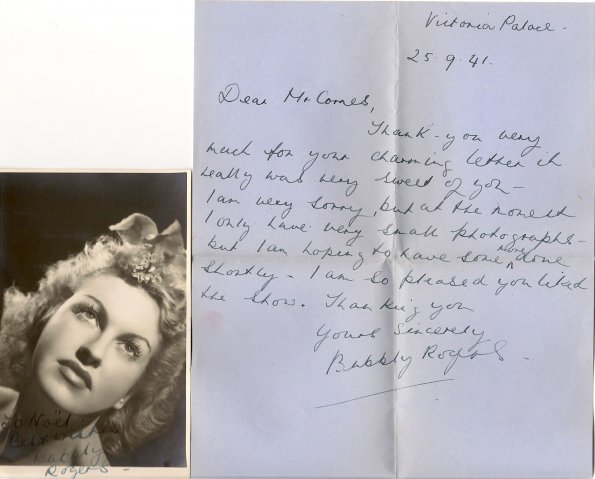 Victoria Palace.
25.9.41.
Dear Mr Cornes,
Thank-you very
much for your charming letter it
really was very sweet of you -
I am very sorry, but at the moment
I only have very small photographs -
but I am hoping to have some more done
shortly - I am so pleased you liked
the show. Thanking you
Yours Sincerely
Bubbly Rogers.
To Noël
Best wishes
Bubbly
Rogers -